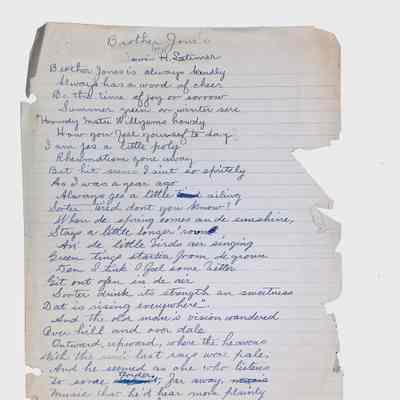 Brother Jones
Lewis H. Latimer
Brother Jones is always kindly
Always has a word of cheer
Be the time of joy or sorrow
Summer green or winter sere
"Howdy Mista Willyems howdy
How you feel yourself to day
I am jes a little poly
Rheumatism gone away
But hit seems I aint so spritely
As I was a year ago
Always jes a little ailing
Sorter tired dont you know!
When de spring comes an de sunshine,
Stays a little longer 'roun
An' de little birds aer singing
Green tings started from de groun
Den I tink I feel some better
Git out ofen in de aer
Sorter drink its strength an sweetness
Dat is rising everywhere".
And the old man's vision wandered
Over hill and over dale
Outward, upward, where the heavens
With the sun's last rays wax pale.
And he seemed as one who listens
To some far away,
Music that he'd hear more plainly